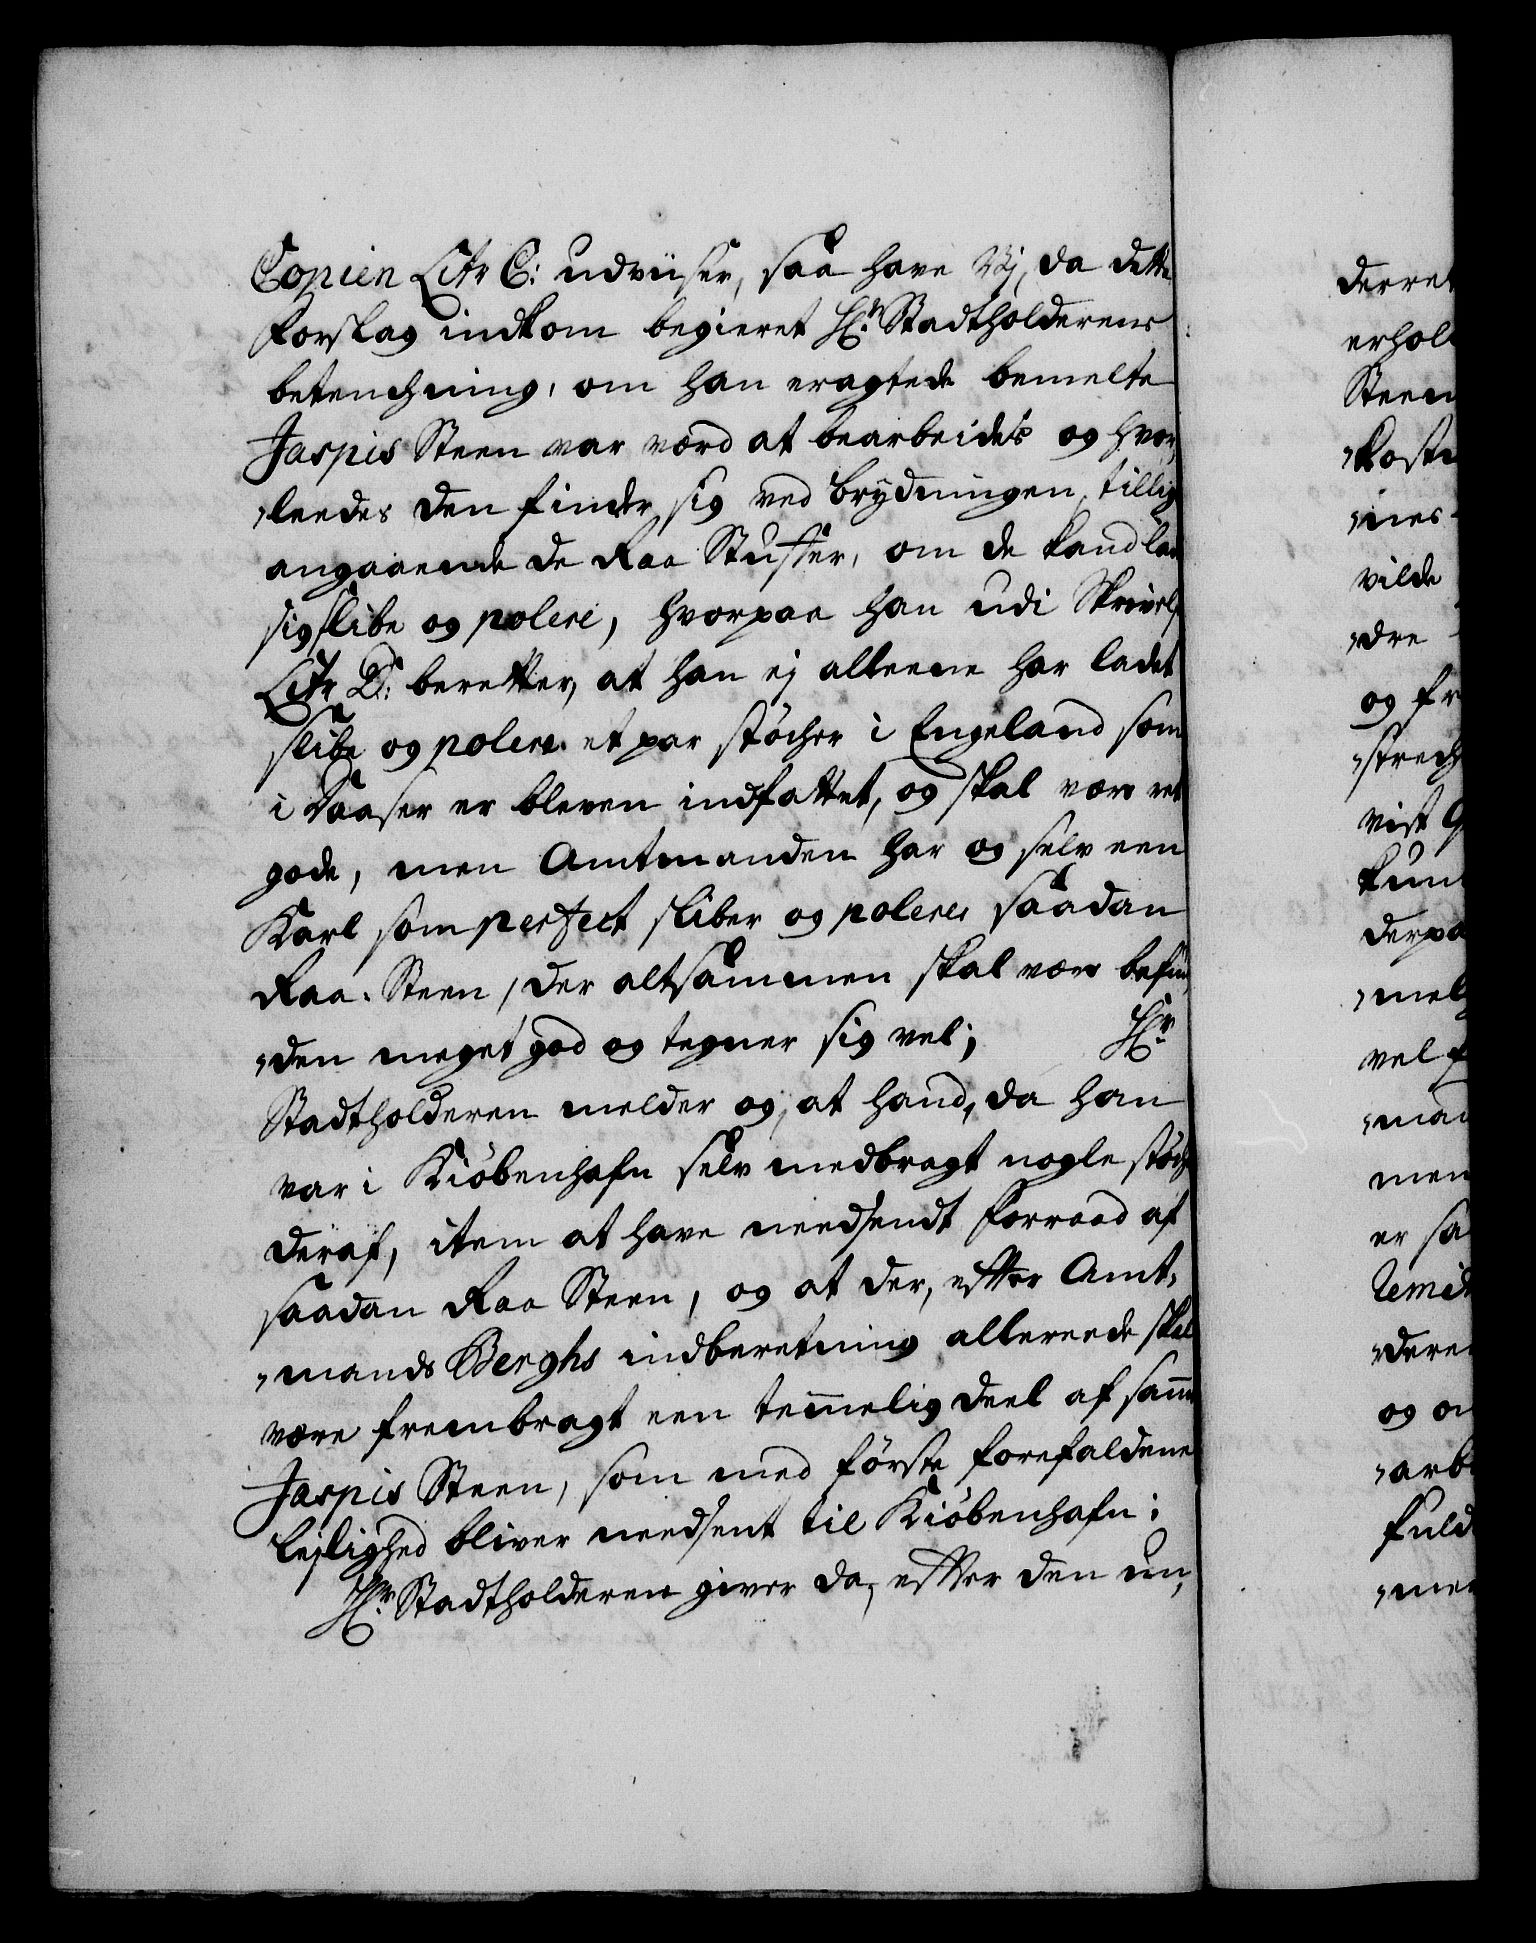 Copien Litr C: udviiser, saa have Vi, da dette
forslag indkom begieret Hr. Stadtholderens
betenchning, om han eragtede bemelte
Jaspis Steen var værd at bearbeides og hvor„
„leedes den finder sig ved brydningen, tillig
angaaende de Raa Stuffer, om de kand lade
sig slibe og polere, hvorpaa han udi Skrivelse
Litr D: beretter, at han ej alleene har ladet
slibe og polere et par støcher i Engeland som
i Daaser er bleven indfattet, og skal være ret
gode, men Amtmanden har og selv een
Karl som perfect sliber og polerer saadan
Raa Steen, der altsammen skal være befun„
„den meget god og tegner sig vel; Hr.
Stadtholderen melder og, at hand, da han
var i Kiöbenhafn selv medbragt nogle støcher
deraf, item at have needsendt forraad af
saadan Raa Steen, og at der, efter Amt„
„mands Berghs indberetning allereede skal
være frembragt een temmelig deel af samme
Jaspis Steen, som med förste forefaldene
lejlighed bliver needsent til Kiöbenhafn;
Hr. Stadtholderen giver da, efter den un„
derret
erhol
Steen
„kost
„nes
vilde
„dre
og fr
„strech
vist
kun
derpa
„mel
vel f
„man
men
er sa
remi
„dere
og o
„arb
fuld
„me